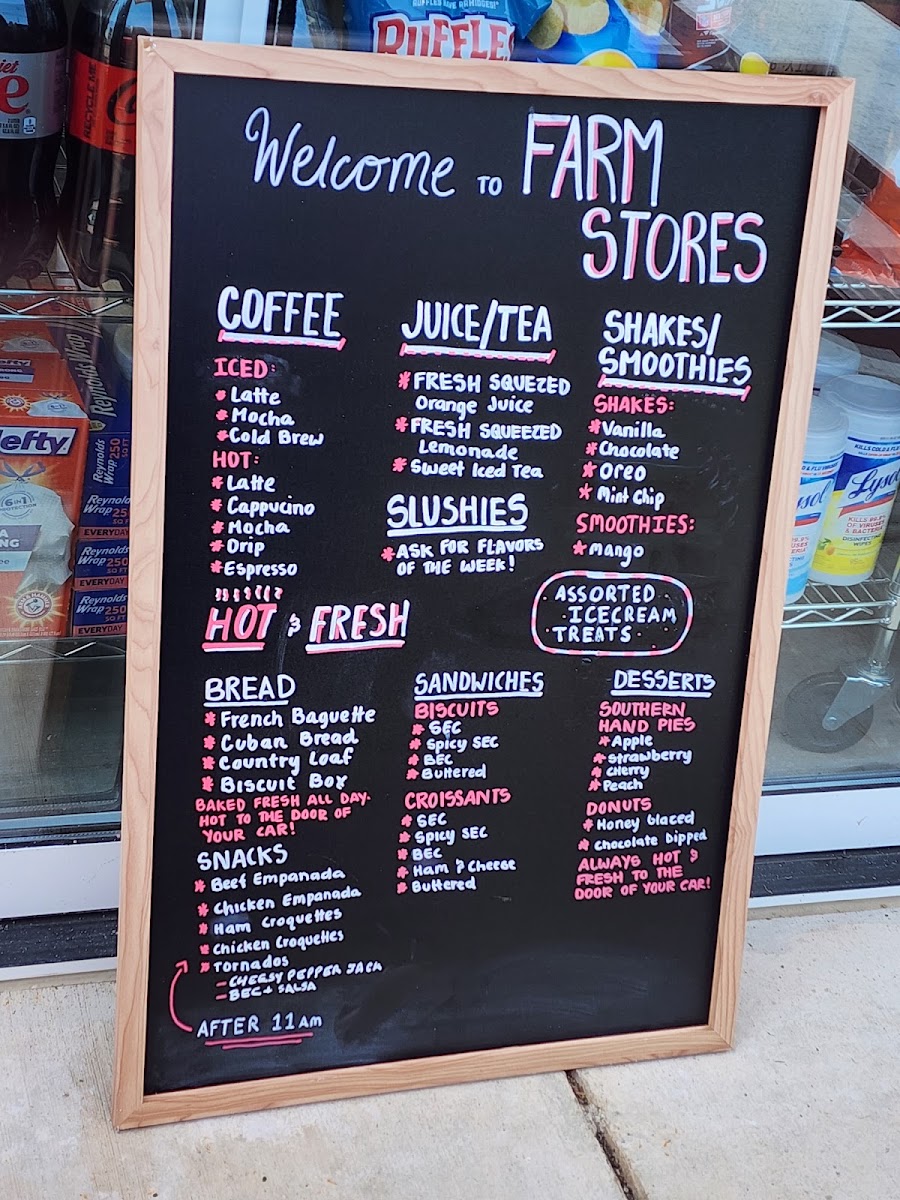 RUFFLES
Welcome TO FARM
STORES
COFFEE
ICED:
* Latte
* Mocha
* Cold Brew
HOT:
* Latte
* Cappucino
* Mocha
* Drip
* Espresso
JUICE/TEA
* FRESH SQUEZED
Orange Juice
* FRESH SQUEEZED
Lemonade
* Sweet Iced Tea
SLUSHIES
* ASK FOR FLAVORS
OF THE WEEK!
SHAKES/
SMOOTHIES
SHAKES:
* Vanilla
* Chocolate
* Oreo
* Mint Chip
SMOOTHIES:
* Mango
ASSORTED
ICECREAM
TREATS
HOT & FRESH
BREAD
* French Baguette
* Cuban Bread
* Country Loaf
* Biscuit Box
BAKED FRESH ALL DAY.
HOT TO THE DOOR OF
YOUR CAR!
SNACKS
* Beef Empanada
* Chicken Empanada
* Ham Croquettes
* Chicken Croquettes
* Tornados
- CHEESY PEPPER JACK
- BEC + SALSA
AFTER 11AM
SANDWICHES
BISCUITS
* SEC
* Spicy SEC
* BEC
* Buttered
CROISSANTS
* SEC
* Spicy SEC
* BEC
* Ham & Cheese
* Buttered
DESSERTS
SOUTHERN
HAND PIES
* Apple
* Strawberry
* Cherry
* Peach
DONUTS
* Honey Glaced
* Chocolate Dipped
ALWAYS HOT &
FRESH TO THE
DOOR OF YOUR CAR!
RECYCLE ME
Hefty
6 IN 1
ARM & HAMMER
Reynolds
Wrap 250
SQ FT
EVERYDAY
Reynolds
Wrap 250
EVERYDAY
Reynolds
Wrap 250
EVERYDAY
Lysol
KILLS 99.9%
OF VIRUSES
& BACTERIA
DISINFECTING
WIPES